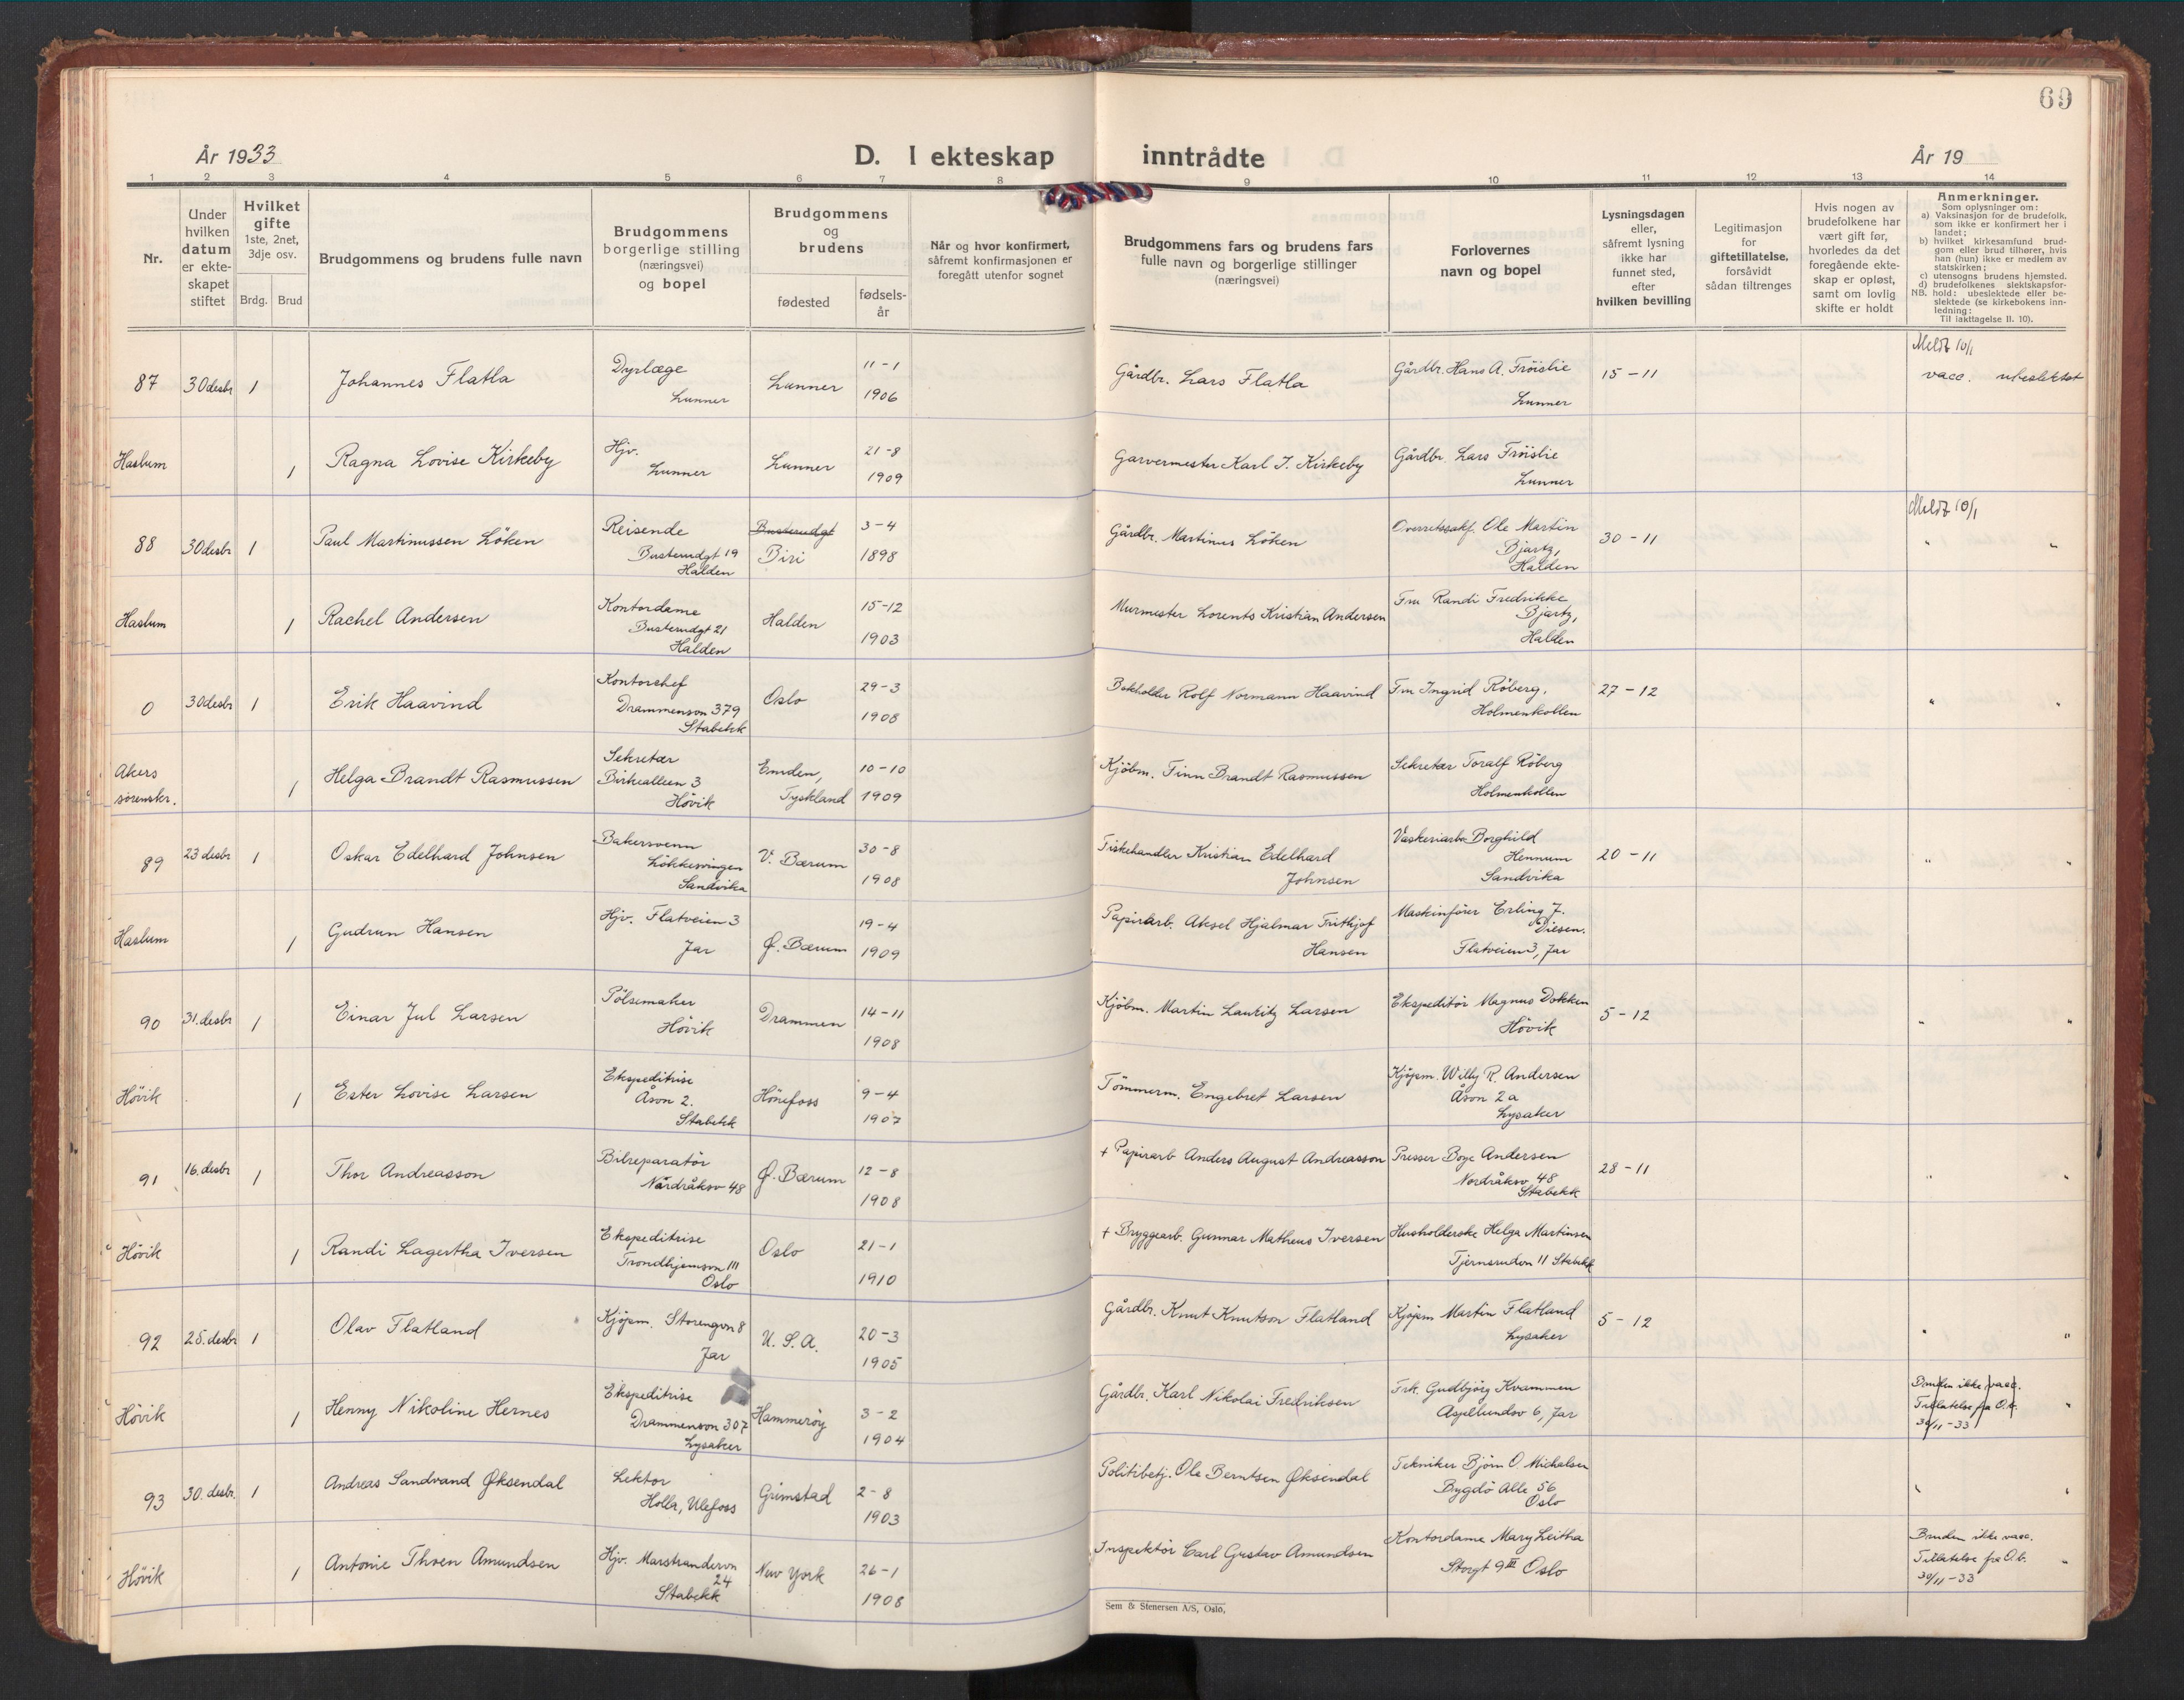 69
År 1933
D. I ekteskap
inntrådte
År 19
1 2 3 4 5 6 7 8 9 10 11 12 13 14
Nr.
Under
hvilken
datum
er ekte-
skapet
stiftet
Hvilket
gifte
1ste, 2net,
3dje osv.
Brdg. Brud
Brudgommens og brudens fulle navn
Brudgommens
borgerlige stilling
(næringsvei)
og bopel
Brudgommens
og
brudens
fødested
fødsels-
år
Når og hvor konfirmert,
såfremt konfirmasjonen er
foregått utenfor sognet
Brudgommens fars og brudens fars
fulle navn og borgerlige stillinger
(næringsvei)
Forlovernes
navn og bopel
Lysningsdagen
eller,
såfremt lysning
ikke har
funnet sted,
efter
hvilken bevilling
Legitimasjon
for
giftetillatelse,
forsåvidt
sådan tiltrenges
Hvis nogen av
brudefolkene har
vært gift før,
hvorledes da det
foregående ekte-
skap er opløst,
samt om lovlig
skifte er holdt
Anmerkninger.
Som oplysninger om:
a) Vaksinasjon for de brudefolk,
som ikke er konfirmert her i
landet;
b) hvilket kirkesamfund brud-
gom eller brud tilhører, hvis
han (hun) ikke er medlem av
statskirken;
c) utensogns brudens hjemsted.
d) brudefolkenes slektskapsfor-
hold: ubeslektede eller be-
slektede (se kirkebokens inn-
ledning:
NB. Til iakttagelse II. 10).
87 30 desbr 1 Johannes Flatla
Dyrlæge
Lunner
Lunner
11-1
1906
Gårdbr. Lars Flatla
Gårdbr. Hans A. Fröislie
Lunner
15-11
Meldt 10/1
vacc. ubeslektet
Haslum 1 Ragna Lovise Kirkeby
Hjv.
Lunner
Lunner
21-8
1909
Garvermester Karl J. Kirkeby
Gårdbr. Lars Fröislie
Lunner
88 30 desbr 1 Paul Martinussen Löken
Reisende
Busterudgt 19
Halden
Busterudgt
Biri
3-4
1898
Gårdbr. Martinus Löken
Overretssakf. Ole Martin
Bjartz,
Halden
30-11
Meldt 10/1
" "
Haslum 1 Rachel Andersen
Kontordame
Busterudgt 21
Halden
Halden
15-12
1903
Murmester Lorents Kristian Andersen
Fru Randi Fredrikke
Bjartz,
Halden
0 30 desbr 1 Erik Haavind
Kontorchef
Drammensvn 379
Stabekk
Oslo
29-3
1908
Bokholder Rolf Normann Haavind
Fru Ingrid Röberg,
Holmenkollen
27-12
" "
Akers
sorenskr.
1 Helga Brandt Rasmussen
Sekretær
Birkealleen 3
Hövik
Emden,
Tyskland
10-10
1909
Kjöbm. Finn Brandt Rasmussen
Sekretær Toralf Röberg
Holmenkollen
89 23 desbr 1 Oskar Edelhard Johnsen
Bakersvenn
Lökkesvingen
Sandvika
V. Bærum
30-8
1908
Fiskehandler Kristian Edelhard
Johnsen
Vaskeriarb. Borghild
Hennum
Sandvika
20-11
" "
Haslum 1 Gudrun Hansen
Hjv. Flatveien 3
Jar
Ø. Bærum
19-4
1909
Papirarb. Aksel Hjalmar Frithjof
Hansen
Maskinfører Erling J.
Diesen.
Flatveien 3, Jar
90 31. desbr 1 Einar Jul Larsen
Pölsemaker
Hövik
Drammen
14-11
1908
Kjöbm. Martin Lauritz Larsen
Ekspeditör Magnus Dokken
Hövik
5-12
" "
Hövik 1 Ester Lovise Larsen
Ekspeditrise
Åsvn 2.
Stabekk
Hönefoss
9-4
1907
Tömmerm. Engebret Larsen
Kjöpm. Willy R. Andersen
Åsvn 2a
Lysaker
91 16. desbr 1 Thor Andreasson
Bilreparatör
Nordråksv 48
Ø. Bærum
12-8
1908
+ Papirarb Anders August Andreasson
Presser Boye Andersen
Nordråksv 48
Stabekk
28-11
" "
Hövik 1 Randi Lagertha Iversen
Ekspeditrise
Trondhjemsvn 111
Oslo
Oslo
21-1
1910
+ Bryggearb. Gunnar Matheus Iversen
Husholderske Helga Martinsen
Tjernsrudvn 11 Stabekk
92 25. desbr 1 Olav Flatland
Kjöpm. Storengvn 8
Jar
U. S. A.
20-3
1905
Gårdbr. Knut Knutson Flatland
Kjöpm Martin Flatland
Lysaker
5-12
" "
Hövik 1 Henny Nikoline Hernes
Ekspeditrise
Drammensvn 307
Lysaker
Hammeröy
3-2
1904
Gårdbr. Karl Nikolai Fredriksen
Frk. Gudbjörg Kvammen
Aspelundsv 6, Jar
Bruden ikke vacc.
Tillatelse fra O.b.
30/11-33
93 30. desbr. 1 Andreas Sandvand Øksendal
Lektor
Holla, Ulefoss
Grimstad
2-8
1903
Politibetj. Ole Berntsen Øksendal
Tekniker Björn O. Michelsen
Bygdö Alle 56
Oslo
" "
Hövik 1 Antonie Thoen Amundsen
Hjv. Marstrandervn
24
Stabekk
New York
26-1
1908
Inspektör Carl Gustav Amundsen
Kontordame Mary Leitha
Storgt 9 III Oslo
Bruden ikke vacc.
Tillatelse fra O.b. "
30/11-33
Sem & Stenersen A/S, Oslo,